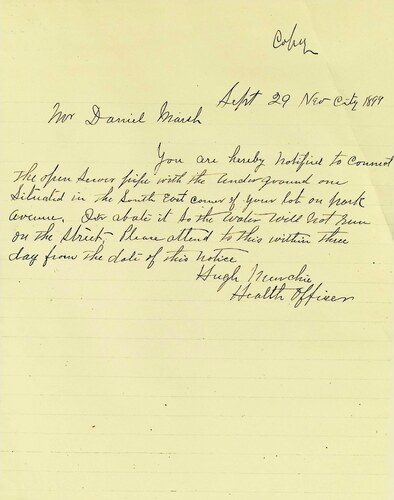 Copy
Sept 29 Nev City 1899
Mr Daniel Marsh
You are hereby Notified to Connect
the open Sewer pipe with the under ground one
Situated in the South East corner of your lot on park
Avenue. Or abate it So the Water Will Not run
on the Street. Please attend to this within three
day from the date of this Notice
Hugh Murchie
Health Officer